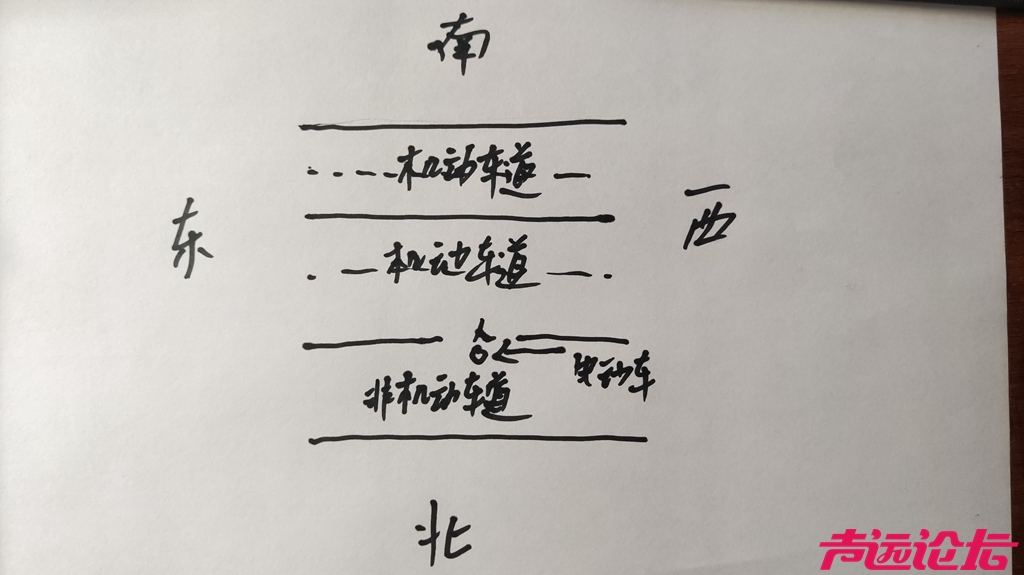 南
机动车道
东
西
机动车道
电动车
非机动车道
北
声远论坛